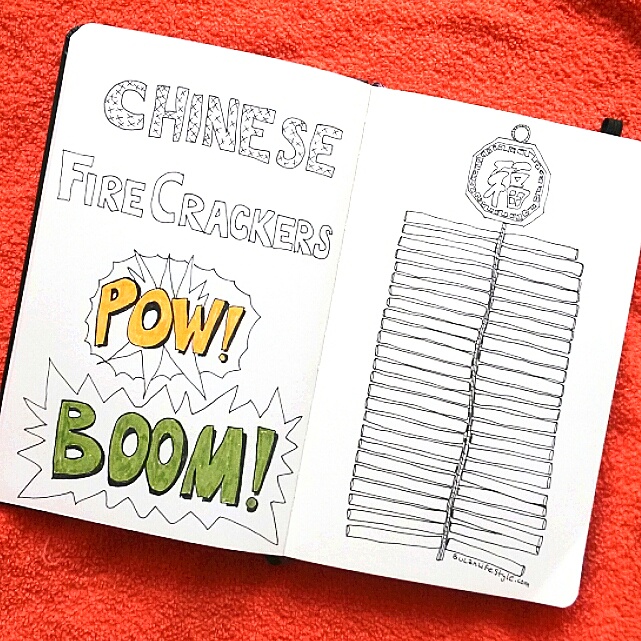 CHINESE
FIRE CRACKERS
POW!
BOOM!
福
BULANLIFESTYLE.COM